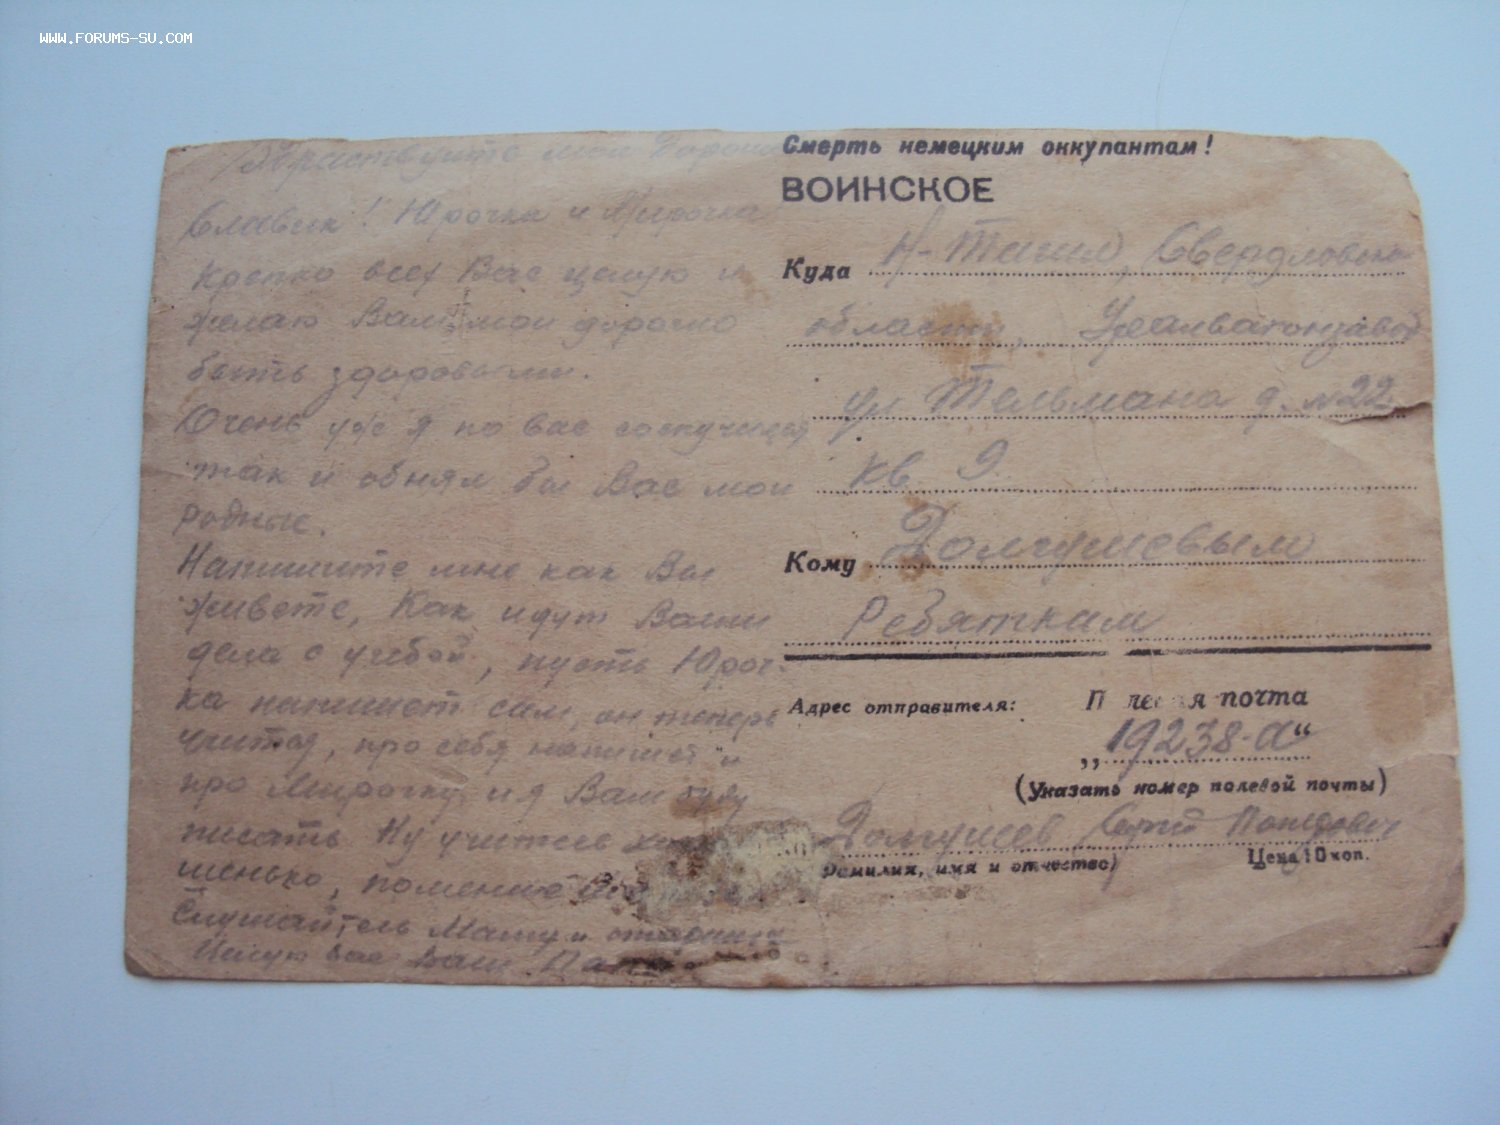 WWW.FORUMS-SU.COM
Здравствуйте мои Дорогие
Славик! Юрочка и Мирочка
Крепко всех Вас целую и
желаю Вам мои дорогие
быть здоровыми.
Очень уже я по вас соскучился
так и обнял бы Вас мои
родные.
Напишите мне как Вы
живете, Как идут Ваши
дела с учебой, пусть Юроч-
ка напишет сам, он теперь
про себя напишет и
про Мирочку, и я Вам буду
писать Ну учитесь хоро
шенько,
Слушайтесь Маму и
Целую вас Ваш Папа
Смерть немецким оккупантам!
ВОИНСКОЕ
Куда Н-Тагил, Свердловско
области, Уралвагонзавод
ул Тельмана д. №22
кв 9
Кому Долгушевым
Ребяткам
Адрес отправителя: Полевая почта
„19238-а“
(Указать номер полевой почты)
Долгушев Сергей
Фамилия, имя и отчество)
Цена 10 коп.